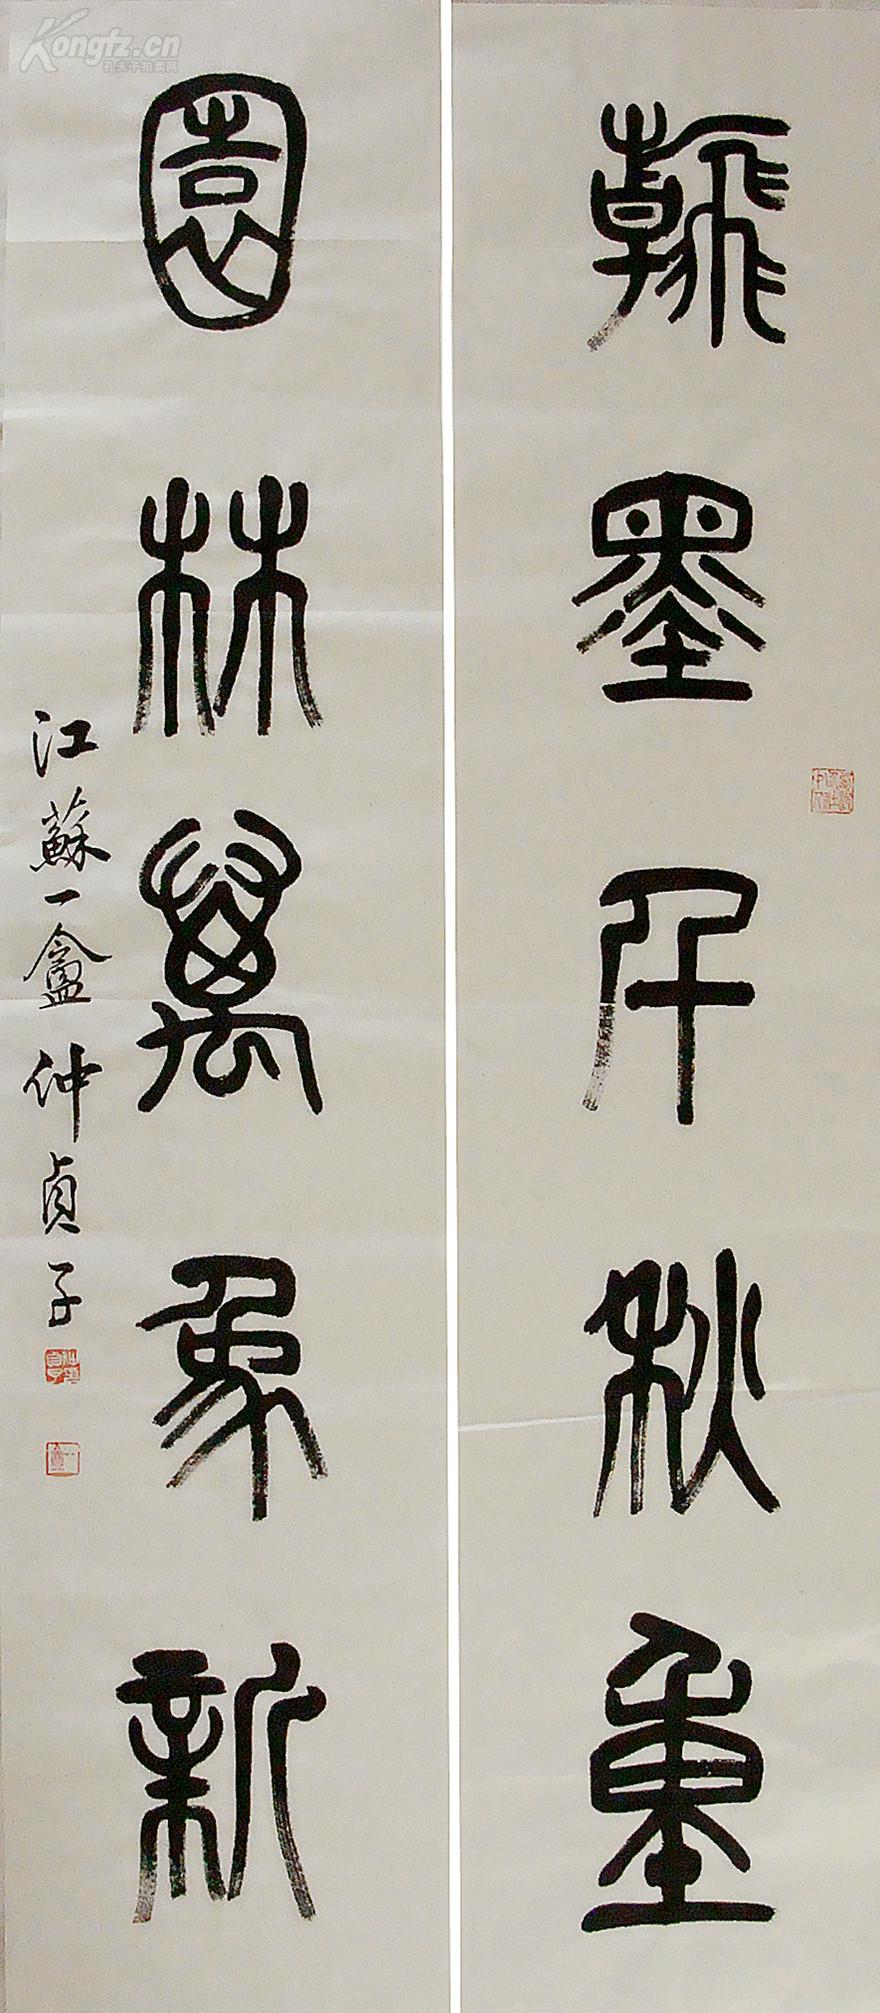 翰墨千秋重
園林萬象新
江蘇一盦仲貞子
Kongfz.cn
孔夫子拍卖网